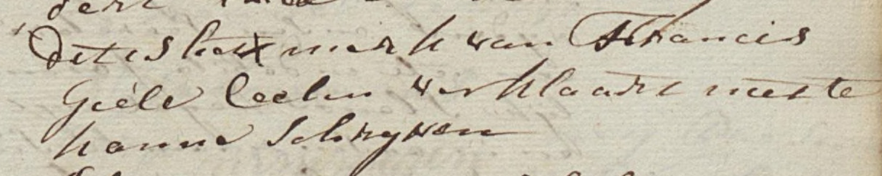 dit is het x merk van Francis
Giele Ceelen verklaart niet te
konne schryven